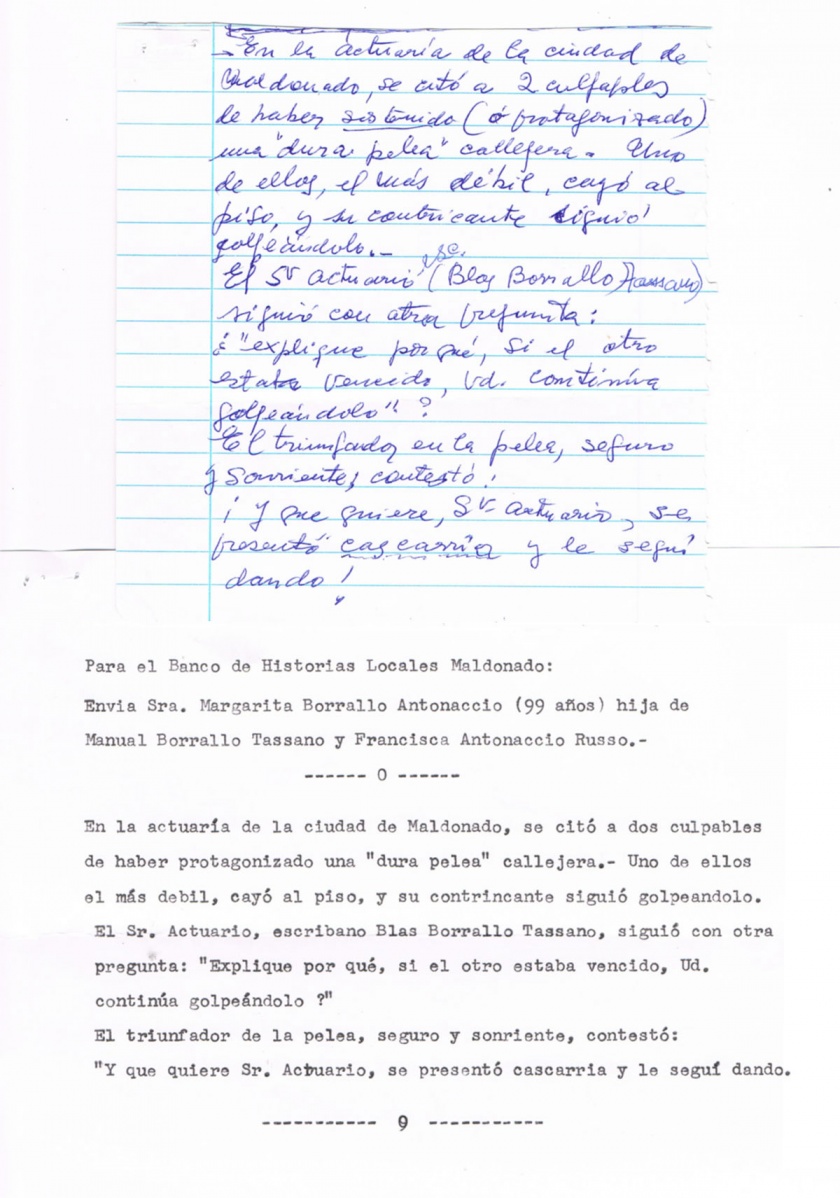 En la actuaría de la ciudad de
Maldonado, se citó a 2 culpables
de haber sostenido (ó protagonizado)
una "dura pelea" callejera. Uno
de ellos, el más débil, cayó al
piso, y su contricante siguió
golpeándolo.-
El Sr actuario (Blas Borrallo Tassano)-
siguió con otra pregunta:
¿"explique por qué, si el otro
estaba vencido, Ud. continúa
golpeándolo"?
El triunfador en la pelea, seguro
y sonriente, contestó:
¡Y que quiere, Sr actuario, se
presentó cascarria y le seguí
dando!
Para el Banco de Historias Locales Maldonado:
Envia Sra. Margarita Borrallo Antonaccio (99 años) hija de
Manual Borrallo Tassano y Francisca Antonaccio Russo.-
------ 0 ------
En la actuaría de la ciudad de Maldonado, se citó a dos culpables
de haber protagonizado una "dura pelea" callejera.- Uno de ellos
el más debil, cayó al piso, y su contrincante siguió golpeandolo.
El Sr. Actuario, escribano Blas Borrallo Tassano, siguió con otra
pregunta: "Explique por qué, si el otro estaba vencido, Ud.
continúa golpeándolo ?"
El triunfador de la pelea, seguro y sonriente, contestó:
"Y que quiere Sr. Actuario, se presentó cascarria y le seguí dando.
----------- 9 -----------